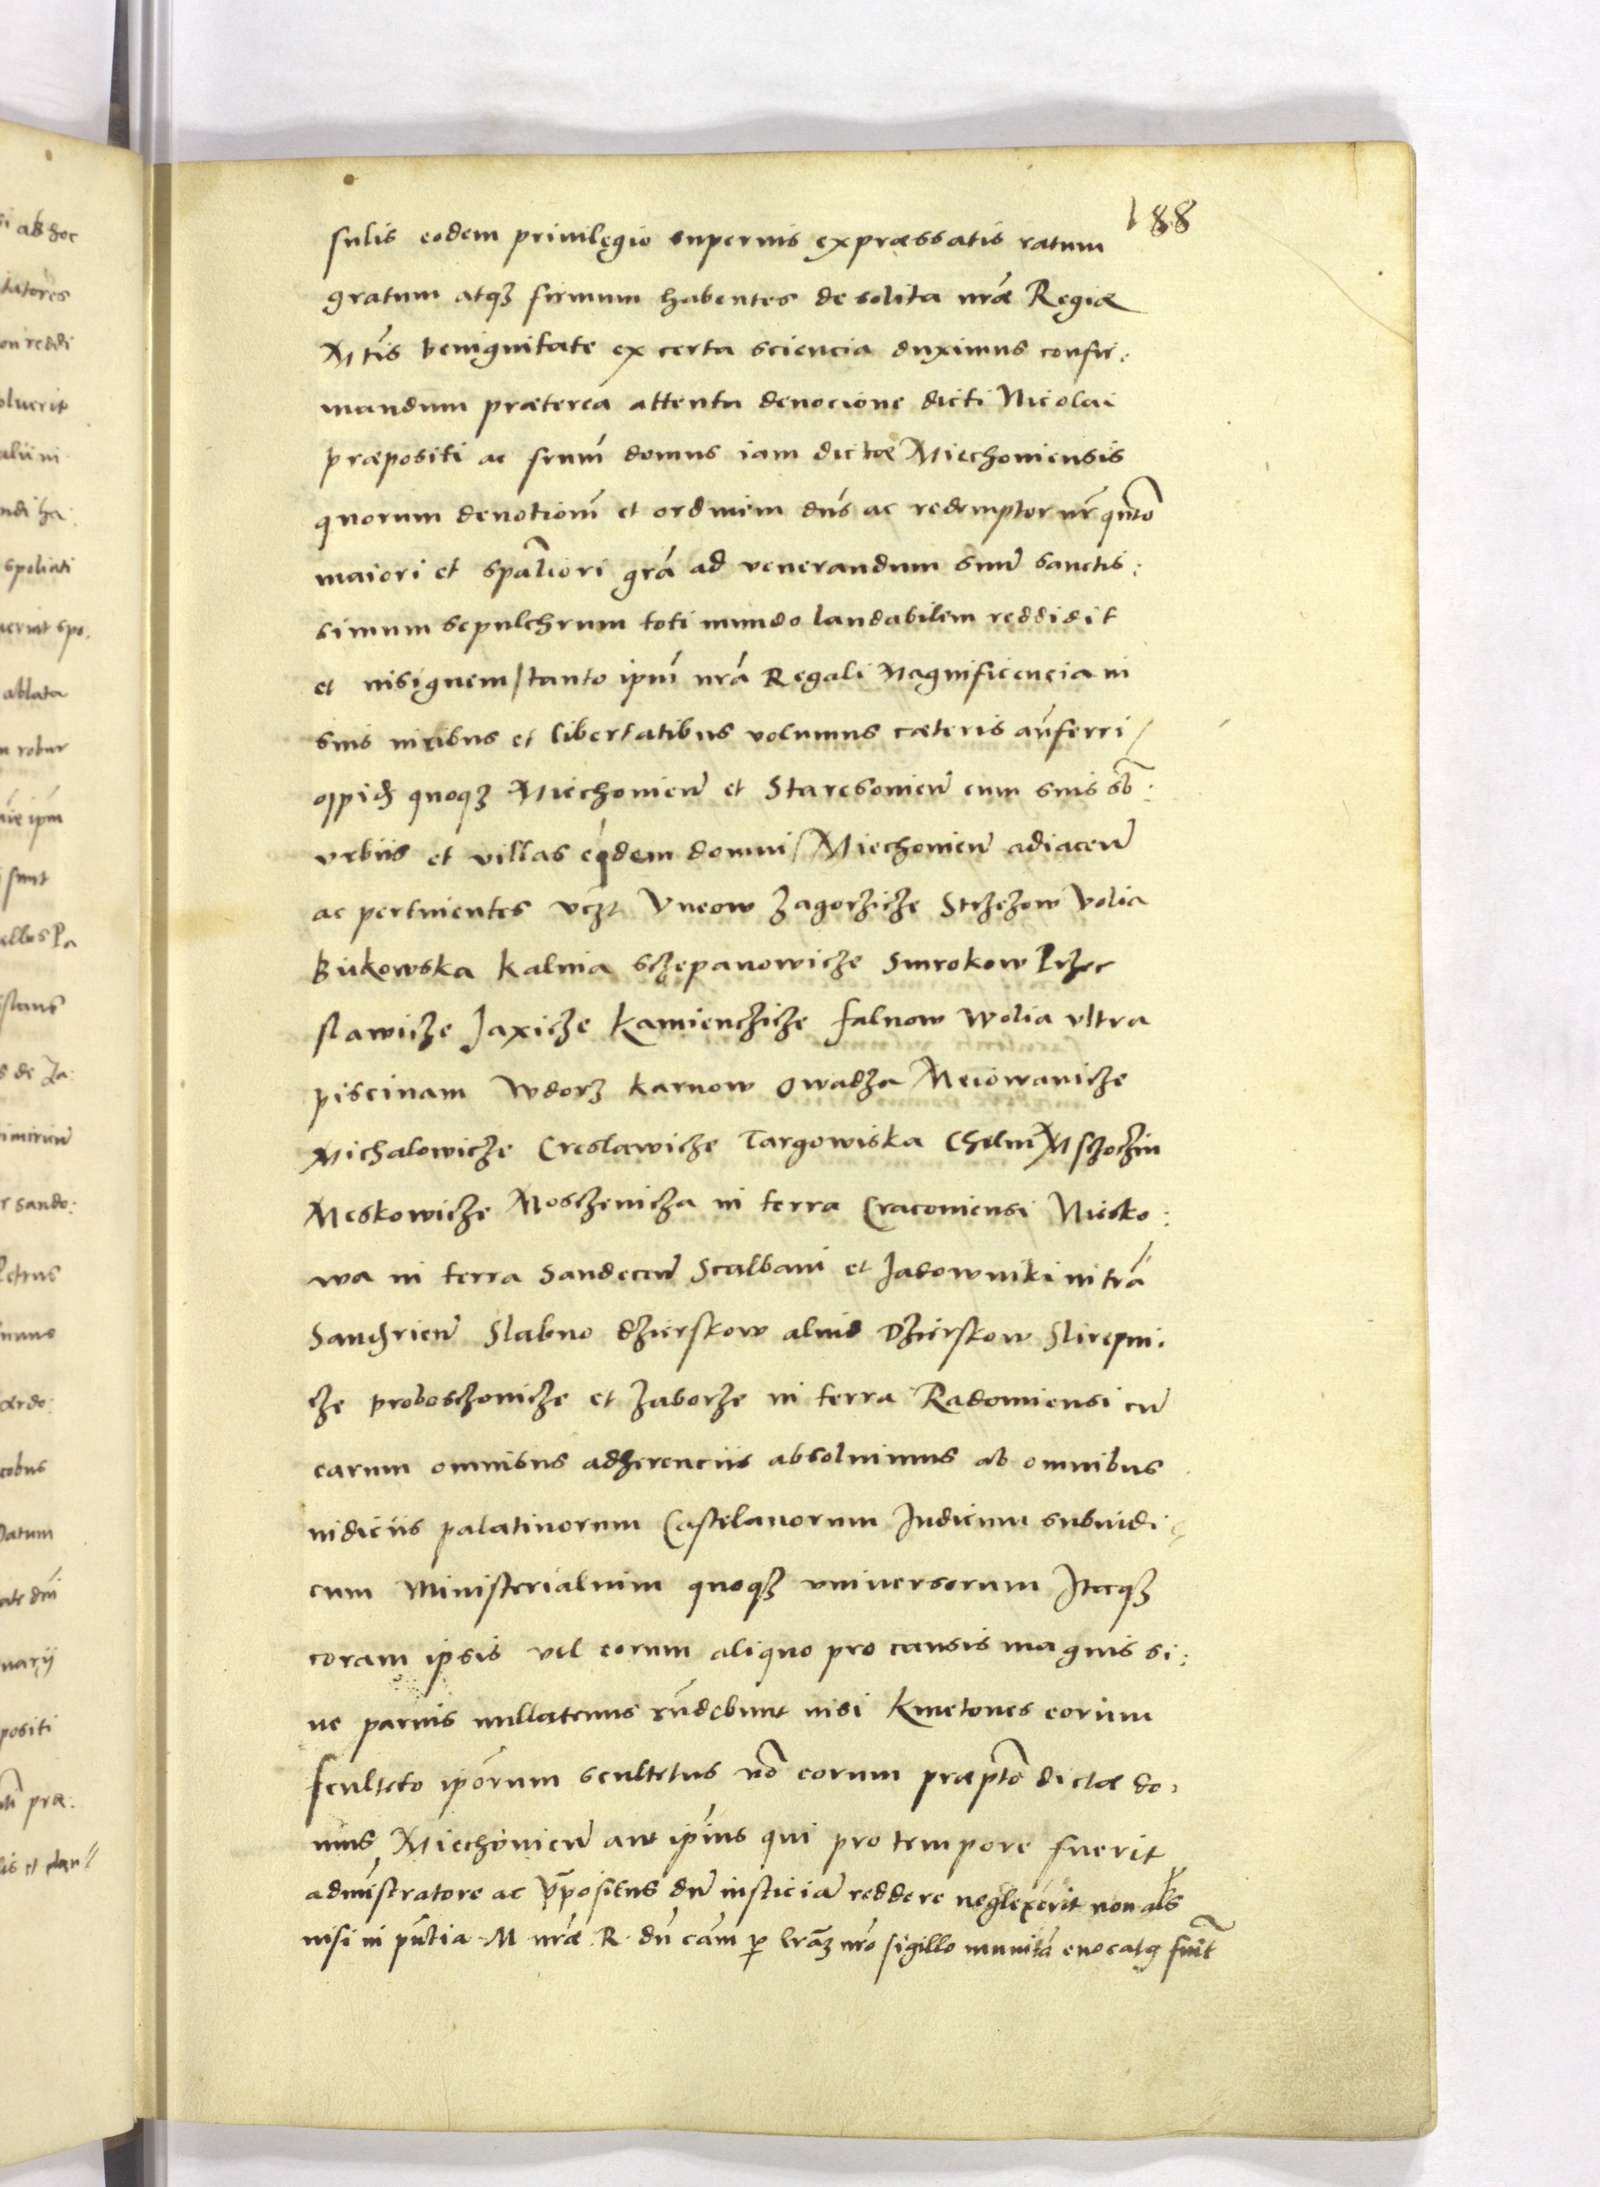 188
sulis eodem privilegio superius expræssatis ratum
gratum atqʒ firmum habentes de solita nrǣ Regiæ
Mtis benignitate ex certa sciencia duximus confir:
mandum præterea attenta devocione dicti Nicolai
præpositi ac frum̄ domus iam dictæ Miechoviensis
quorum devotiom̄ et ordinem dn̄s ac redemptor nr̄ qn̄to
maiori et spāliori grā ad venerandum suum̄ sanctis:
simum sepulchrum toti mundo laudabilem reddidit
et insignem / tanto ipm̄ nrā Regali Magnificencia in
suis iuribus et libertatibus volumus cæteris anferri /
oppid quoqʒ Miechovien̄ et Staresovien̄ cum suis sb:
urbiis et villas eidem domui / Miechovien̄ adiacen̄
ac pertinentes vcʒt Uneow Zagorzicze Strzezow Volia
Bukowska Kalina sczepanowicze Smrokow Przec
slawicze Jaxicze Kamienczicze falnow Wolia ultra
piscinam Wdorz karnow Gwadza Meiowanicze
Michalowicze Creslawicze Targowiska Chelm Msczoczin
Meskowicze Mosczenicza in terra Cracoviensi Niesko:
wa in terra Sandecen̄ Scalbani et Jadowniki in trā
Sandrien̄ Slabno dzierskow aliud Dzierskow Slirepni:
cze proboszovicze et Zaborze in terra Radomiensi cu̅
earum omnibus adherenciis absolvimus ab omnibus
iudiciis palatinorum Castelanorum Judicum subiudi
cum Ministerialium quoqʒ universorum Itaqʒ
coram ipsis vel eorum aliquo pro causis magnis si:
ve parvis nullatenus rn̄debunt nisi Kmetones eorum
sculteto ipōrum scultetus vō eorum præpto dictæ do:
mus Miechovien̄ aut ipīus qui pro tempore fuerit
admistratore ac p̄positus dum̄ iusticiam̄ reddere neglexerit non als
nisi in pn̄tia M nrǣ R. dn̄ cam̄ p lrāʒ nrō sigillo munitā evocatʒ fuīt